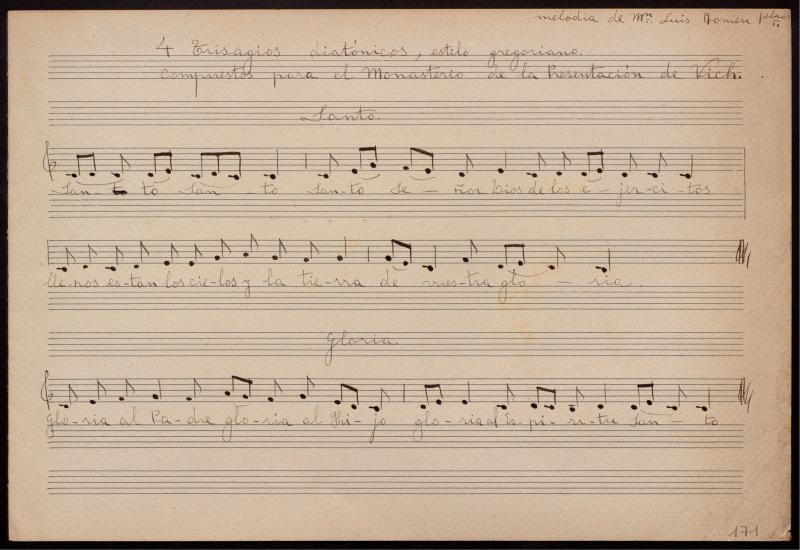 melodia de Mn. Luis Romeu pbro.
4 Trisagios diatónicos, estilo gregoriano.
Compuestos para el Monasterio de la Presentación de Vich.
Santo.
San- to San - to San-to Se - ñor Dios de los e - jer-ci - tos
lle-nos es-tan los cie-los y la tie-rra de vues-tra glo - ria.
Gloria
Glo-ria al Pa-dre glo-ria al Hi-jo glo-ria al Es-pi-ri-tu San - to
171